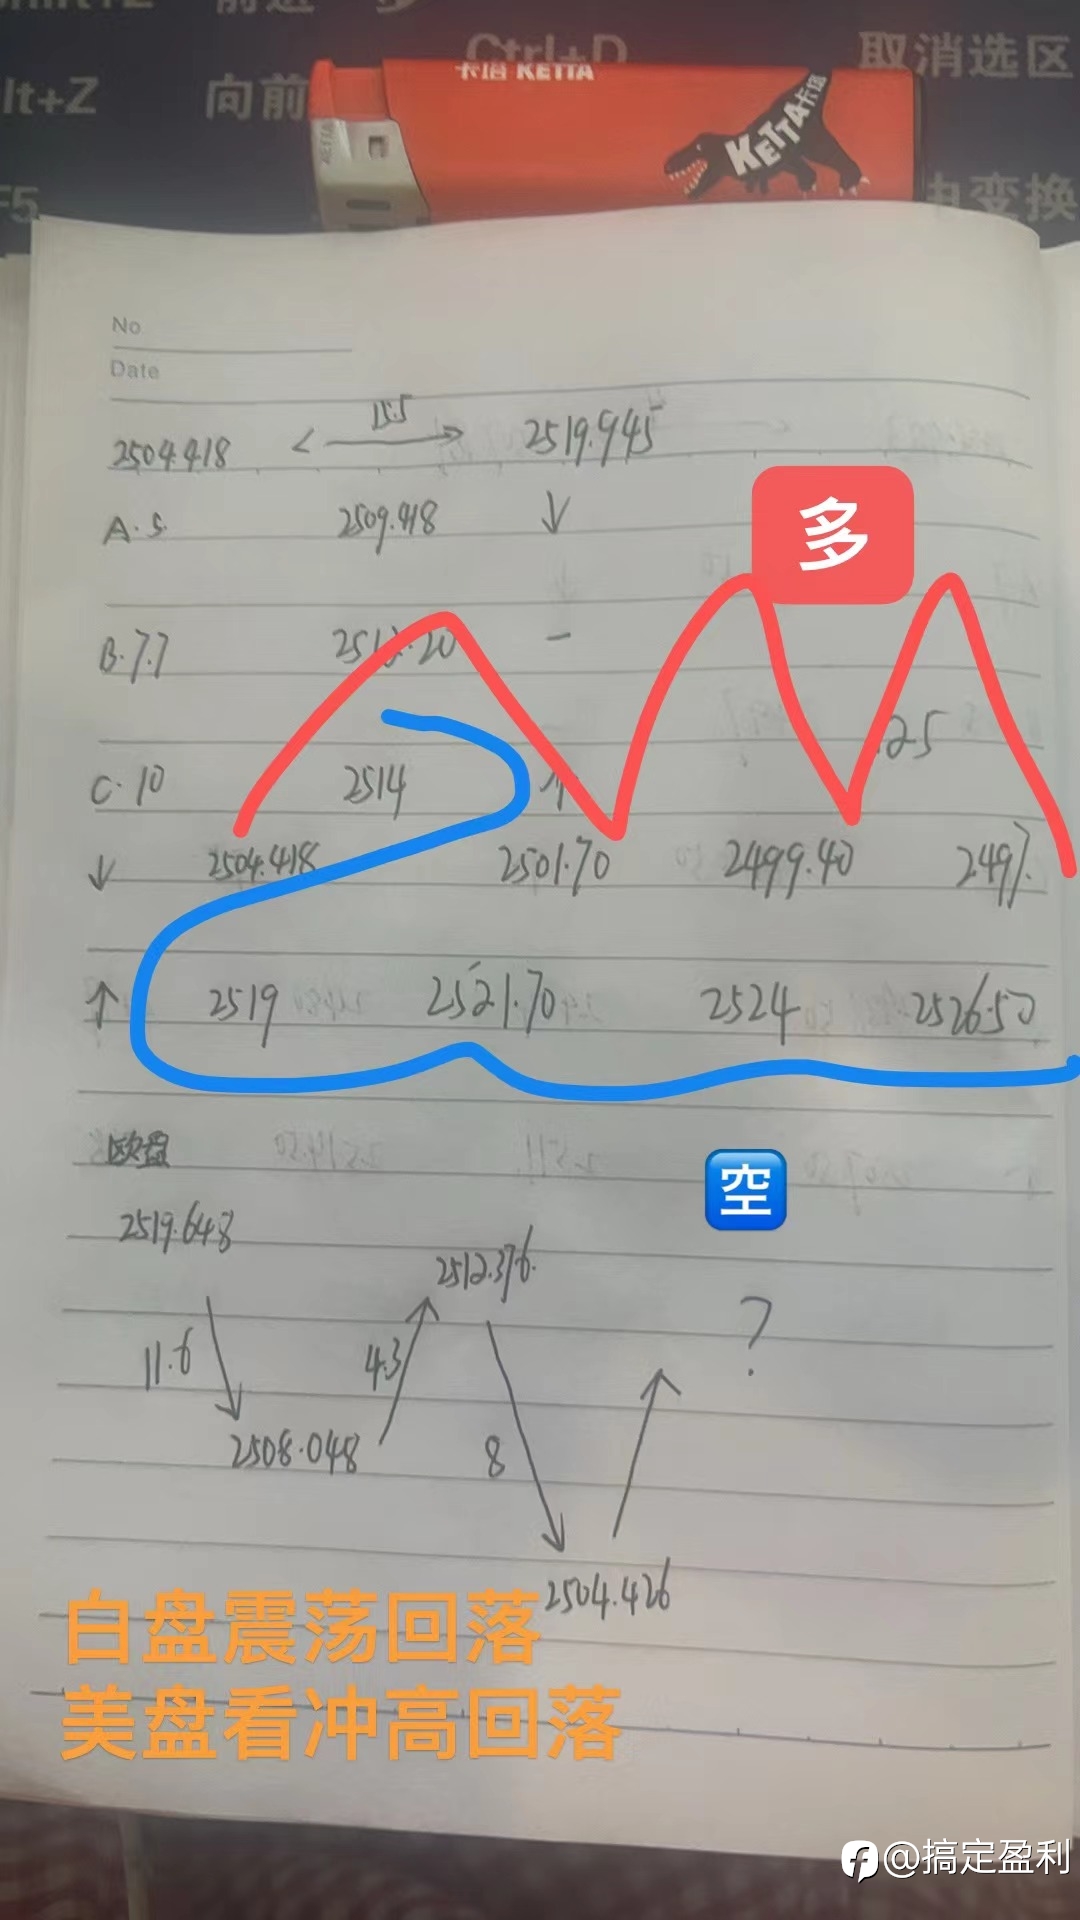 Ctrl+D
取消选区
lt+Z
向前
卡塔 KETTA
KETTA卡塔
F5
由变换
No
Date
15.5
2504.418
2519.945
A. 5.
2509.418
↓
多
B. 7.7
2512.20
-
.25
C. 10
2514
↑
↓ 2504.418 2501.70 2499.40 2497.
↑ 2519 2521.70 2524 2526.50
欧盘
空
2519.648
2512.376.
?
11.6
4.3
2508.048
8
2504.426
白盘震荡回落
美盘看冲高回落
@搞定盈利